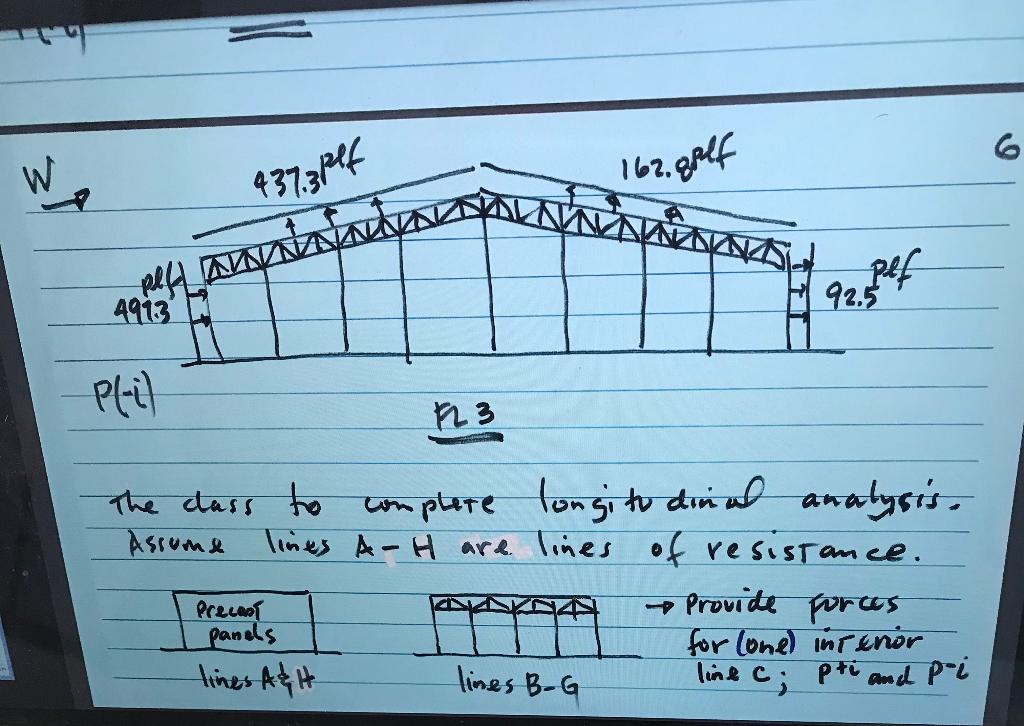 6
W
437.3 plf
162.8 plf
plf
497.3
plf
92.5
P(-i)
FL 3
The class to complete longitudinal analysis.
Assume lines A-H are lines of resistance.
Precast
panels
lines A & H
lines B-G
→ Provide forces
for (one) interior
line C; P+i and P-i